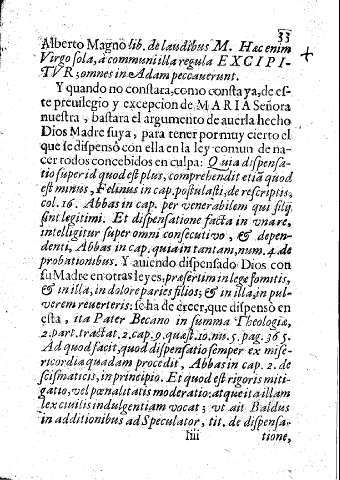 33
Alberto Magno lib. de laudibus M. Hac enim
Virgo sola, à communi illa regula EXCIPI-
TVR; omnes in Adam peccauerunt.
Y quando no constara, como consta ya, de es-
te preuilegio y excepcion de MARIA Señora
nuestra, bastara el argumento de auerla hecho
Dios Madre suya, para tener por muy cierto el
que se dispensò con ella en la ley comun de na-
cer todos concebidos en culpa: Quia dispensa-
tio super id quod est plus, comprehendit etiã quod
est minus, Felinus in cap. postulasti, de rescriptis,
col. 16. Abbas in cap. per venerabilem qui filij
sint legitimi. Et dispensatione facta in vnare,
intelligitur super omni consecutivo, & depen-
denti, Abbas in cap. quia in tantam, num. 4. de
probationibus. Y auiendo dispensado Dios con
su Madre en otras leyes, præsertim in lege fomitis,
& in illa, in dolore paries filios; & in illa, in pul-
verem reuerteris: se ha de creer, que dispensò en
esta, ita Pater Becano in summa Theologiæ,
2. part. tractat. 2. cap. 9. quæst. 10. nu. 5. pag. 365.
Ad quod facit, quod dispensatio semper ex mise-
ricordia quadam procedit, Abbas in cap. 2. de
scismaticis, in principio. Et quod est rigoris miti-
gatio, vel pœnalitatis moderatio; atque ita illam
lex ciuilis indulgentiam vocat; vt ait Baldus
in additionibus ad Speculator, tit. de dispensa-
Iiii tione,